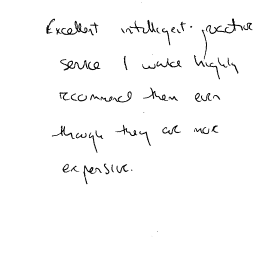 Excellent intelligent. proactive
service I woule highly
recommend them even
though they are more
expensive.